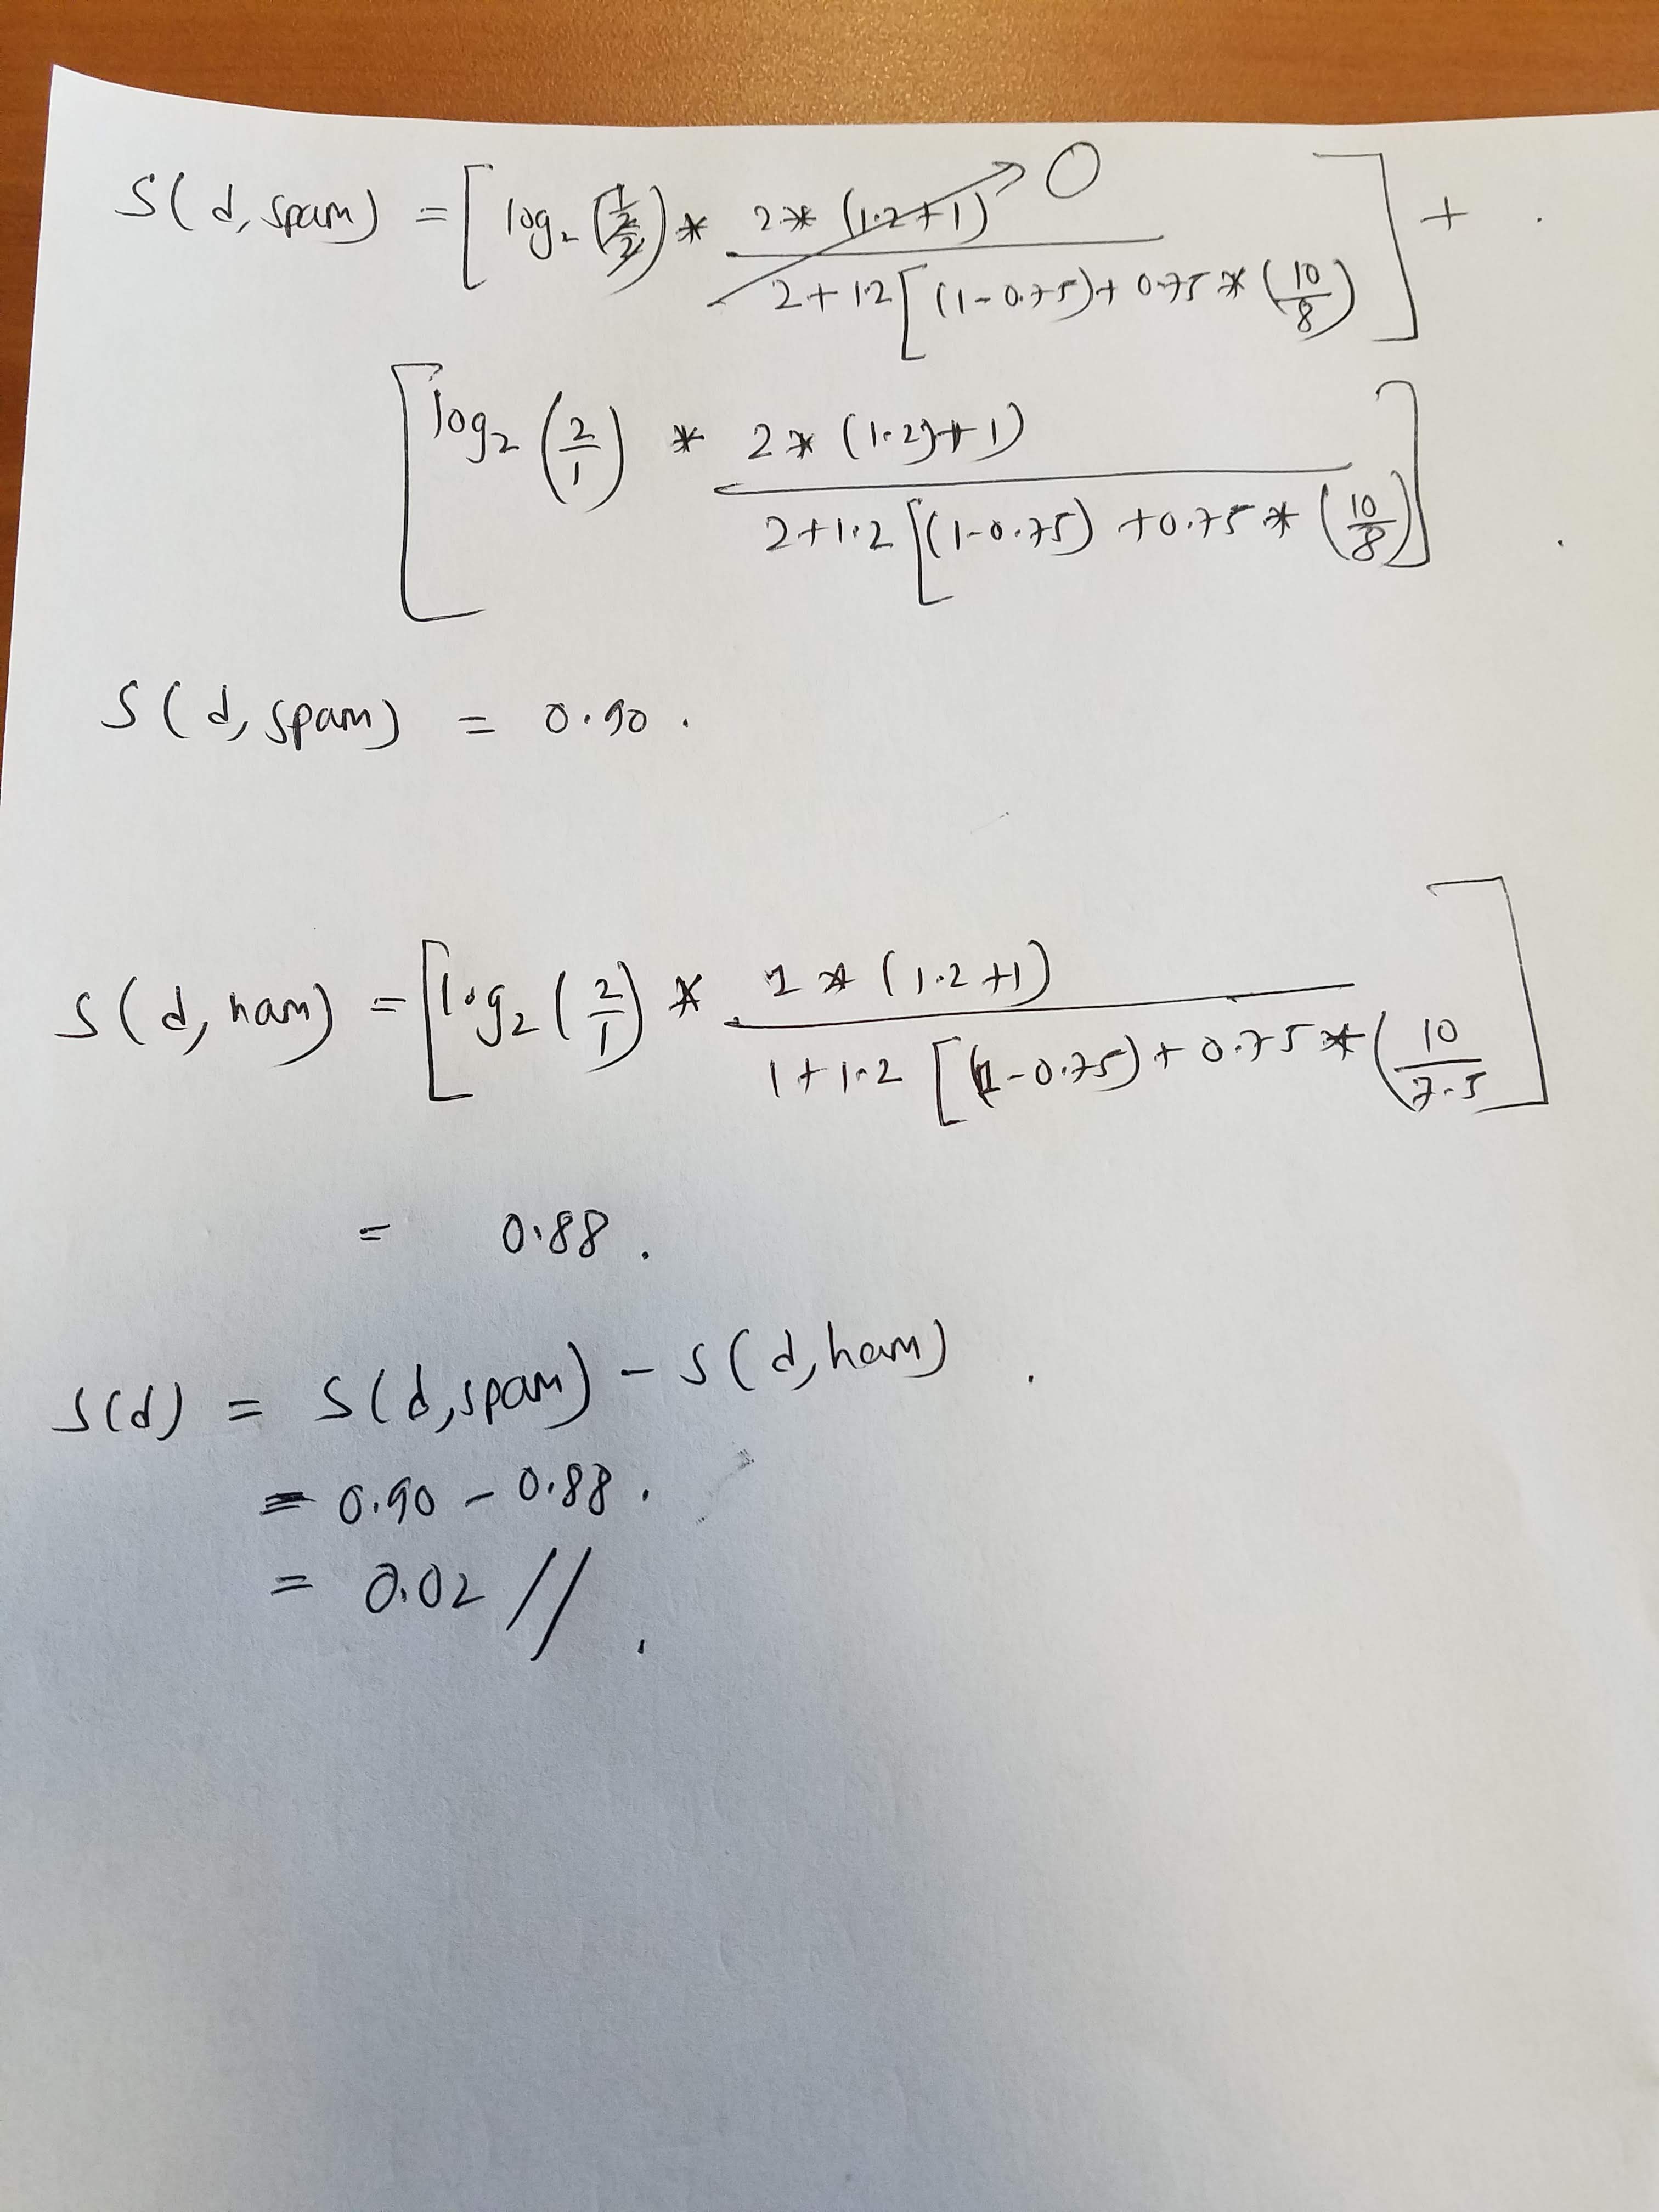 S(d, spam) = [ log₂ (2/2) * 2* (1.2+1) / 2+1.2[(1-0.75)+0.75*(10/8) ] + → 0
[ log₂ (2/1) * 2* (1.2)+1) / 2+1.2[(1-0.75) +0.75*(10/8) ]
S(d, spam) = 0.90 .
S(d, ham) = [log₂ (2/1) * 1* (1.2+1) / 1+1.2 [(1-0.75)+0.75*(10/7.5 ]
= 0.88 .
S(d) = S(d,spam) - S(d,ham) .
= 0.90 - 0.88 .
= 0.02 // .